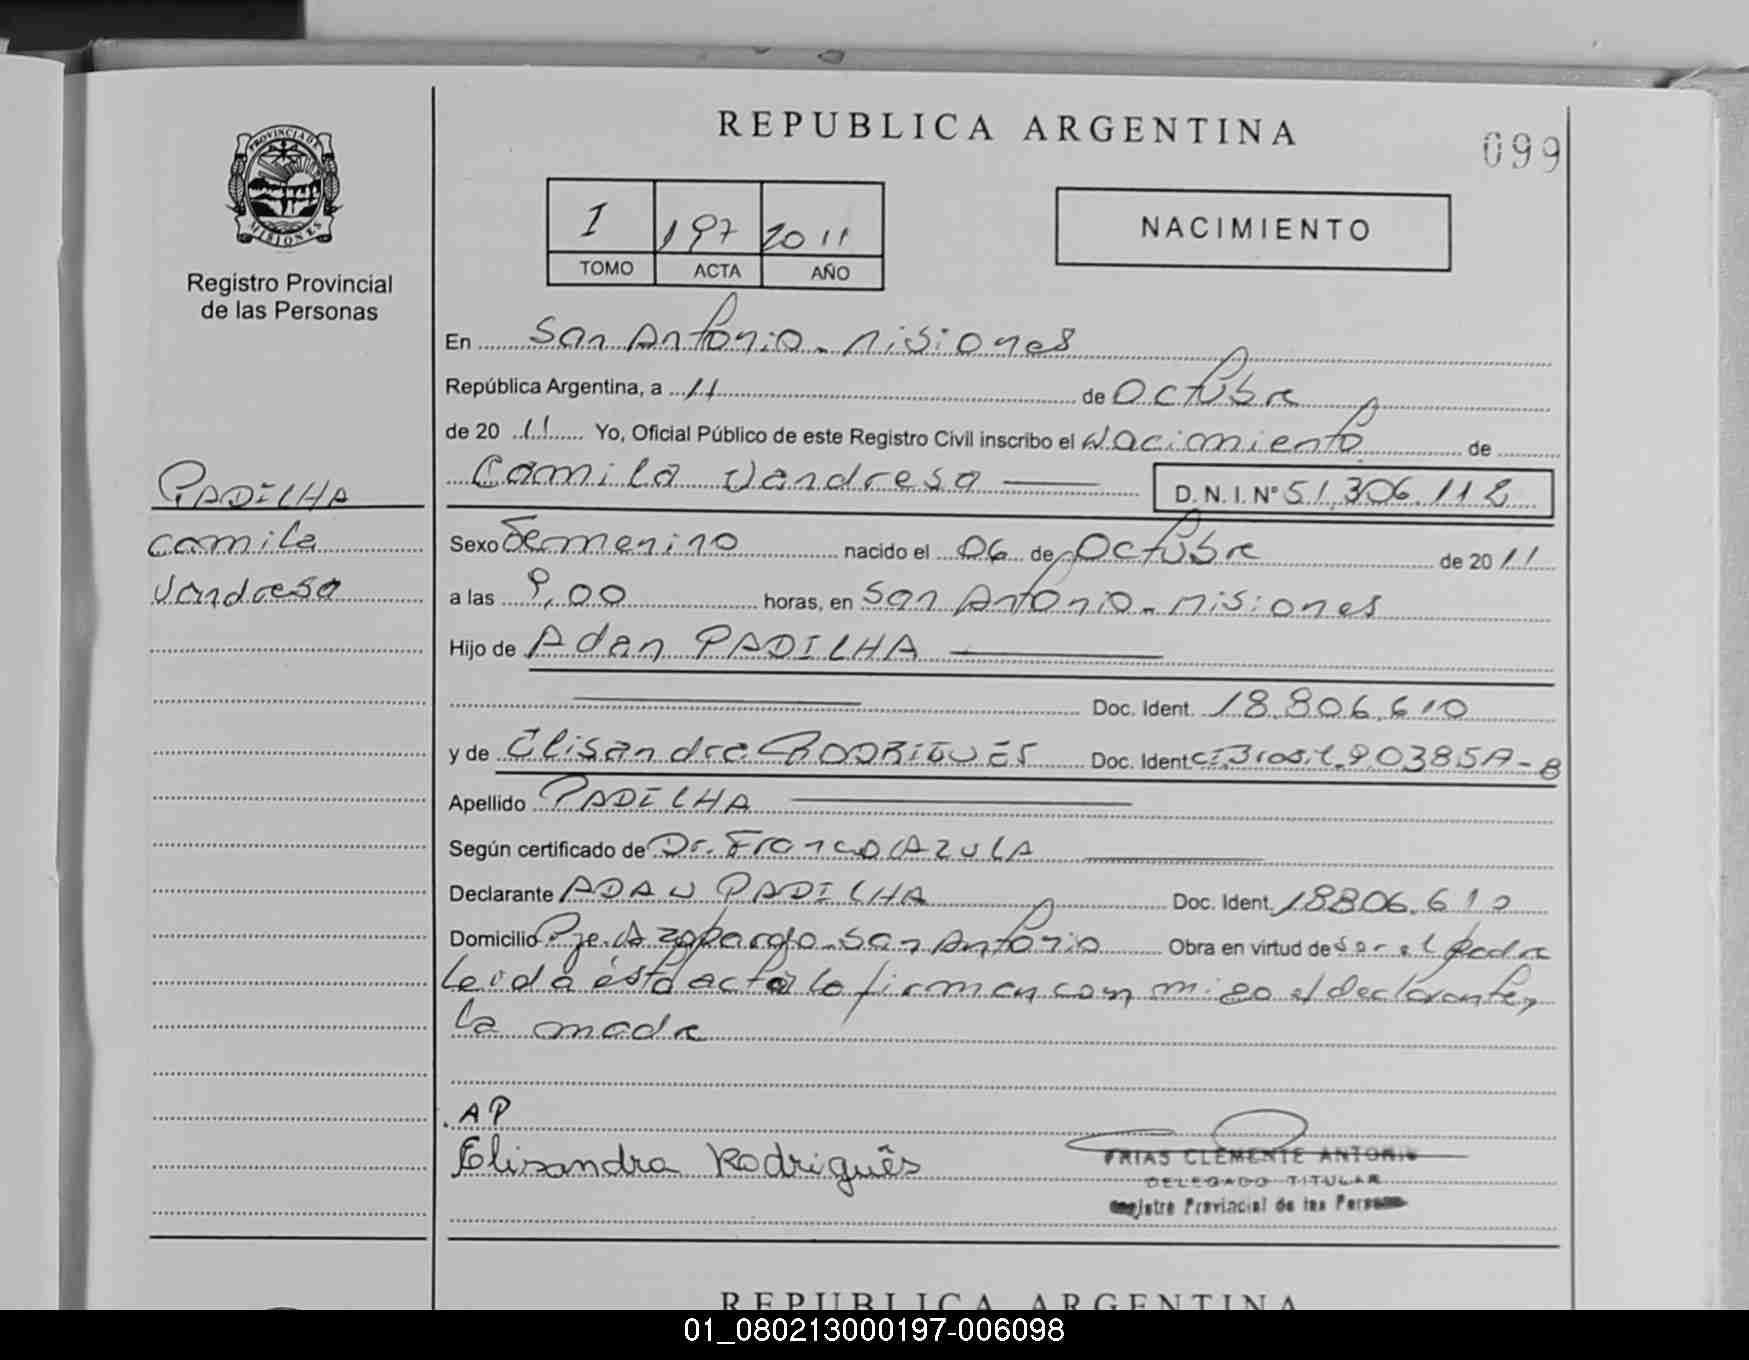 REPUBLICA ARGENTINA
099
PROVINCIA DE MISIONES
Registro Provincial
de las Personas
I 197 2011
TOMO ACTA AÑO
NACIMIENTO
En San Antonio - Misiones
República Argentina, a 11 de Octubre
de 20 11 Yo, Oficial Público de este Registro Civil inscribo el Nacimiento de
Camila Vandresa D.N.I.Nº 51.306.112
PADILHA
Camila
Vandresa
Sexo Femenino nacido el 06 de Octubre de 20 11
a las 9,00 horas, en San Antonio - Misiones
Hijo de Adan PADILHA
Doc. Ident. 18.806.610
y de Elisandra RODRIGUES Doc. Ident CI Brasil 90385A-8
Apellido PADILHA
Según certificado de Dr. Franco AZULA
Declarante ADAN PADILHA Doc. Ident. 18806.610
Domicilio Pje. Azopardo - San Antonio Obra en virtud de ser el padre
Leida ésta acta la firman con migo el declarante y
la madre
AP
Elisandra Rodriguês
FRIAS CLEMENTE ANTONIO
DELEGADO TITULAR
Registro Provincial de las Personas
REPUBLICA ARGENTINA
01_080213000197-006098